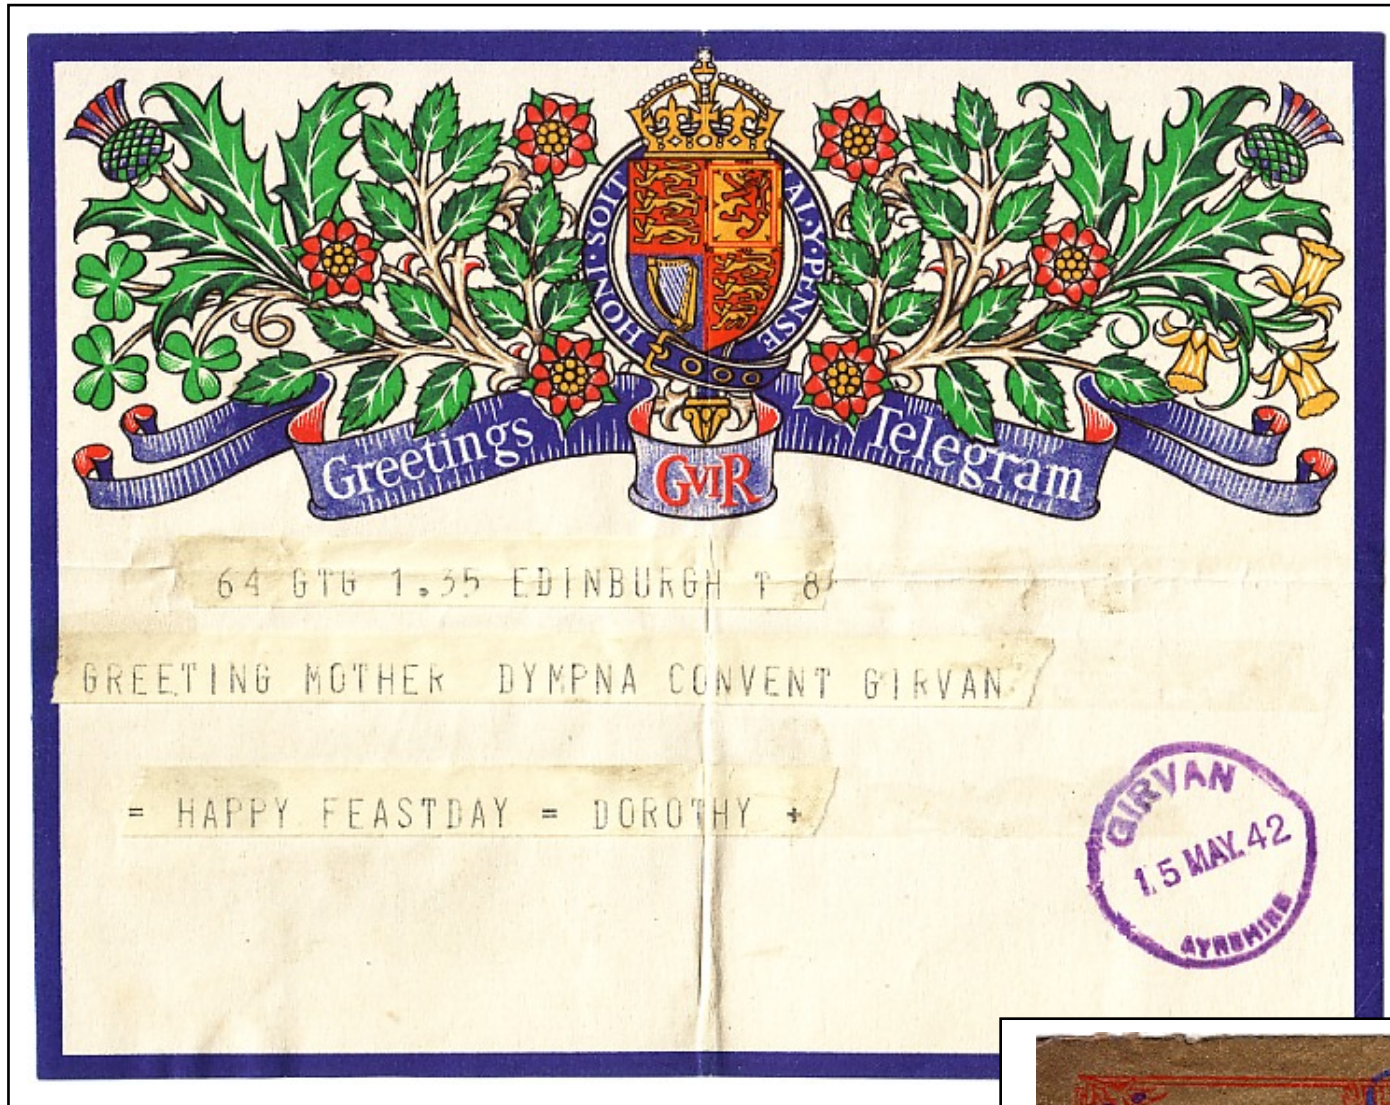 HONI · SOIT
AL · Y · PENSE
Greetings
GVIR
Telegram
64 GTG 1.35 EDINBURGH T 8
GREETING MOTHER DYMPNA CONVENT GIRVAN
= HAPPY FEASTDAY = DOROTHY +
GIRVAN
15 MAY. 42
AYRSHIRE